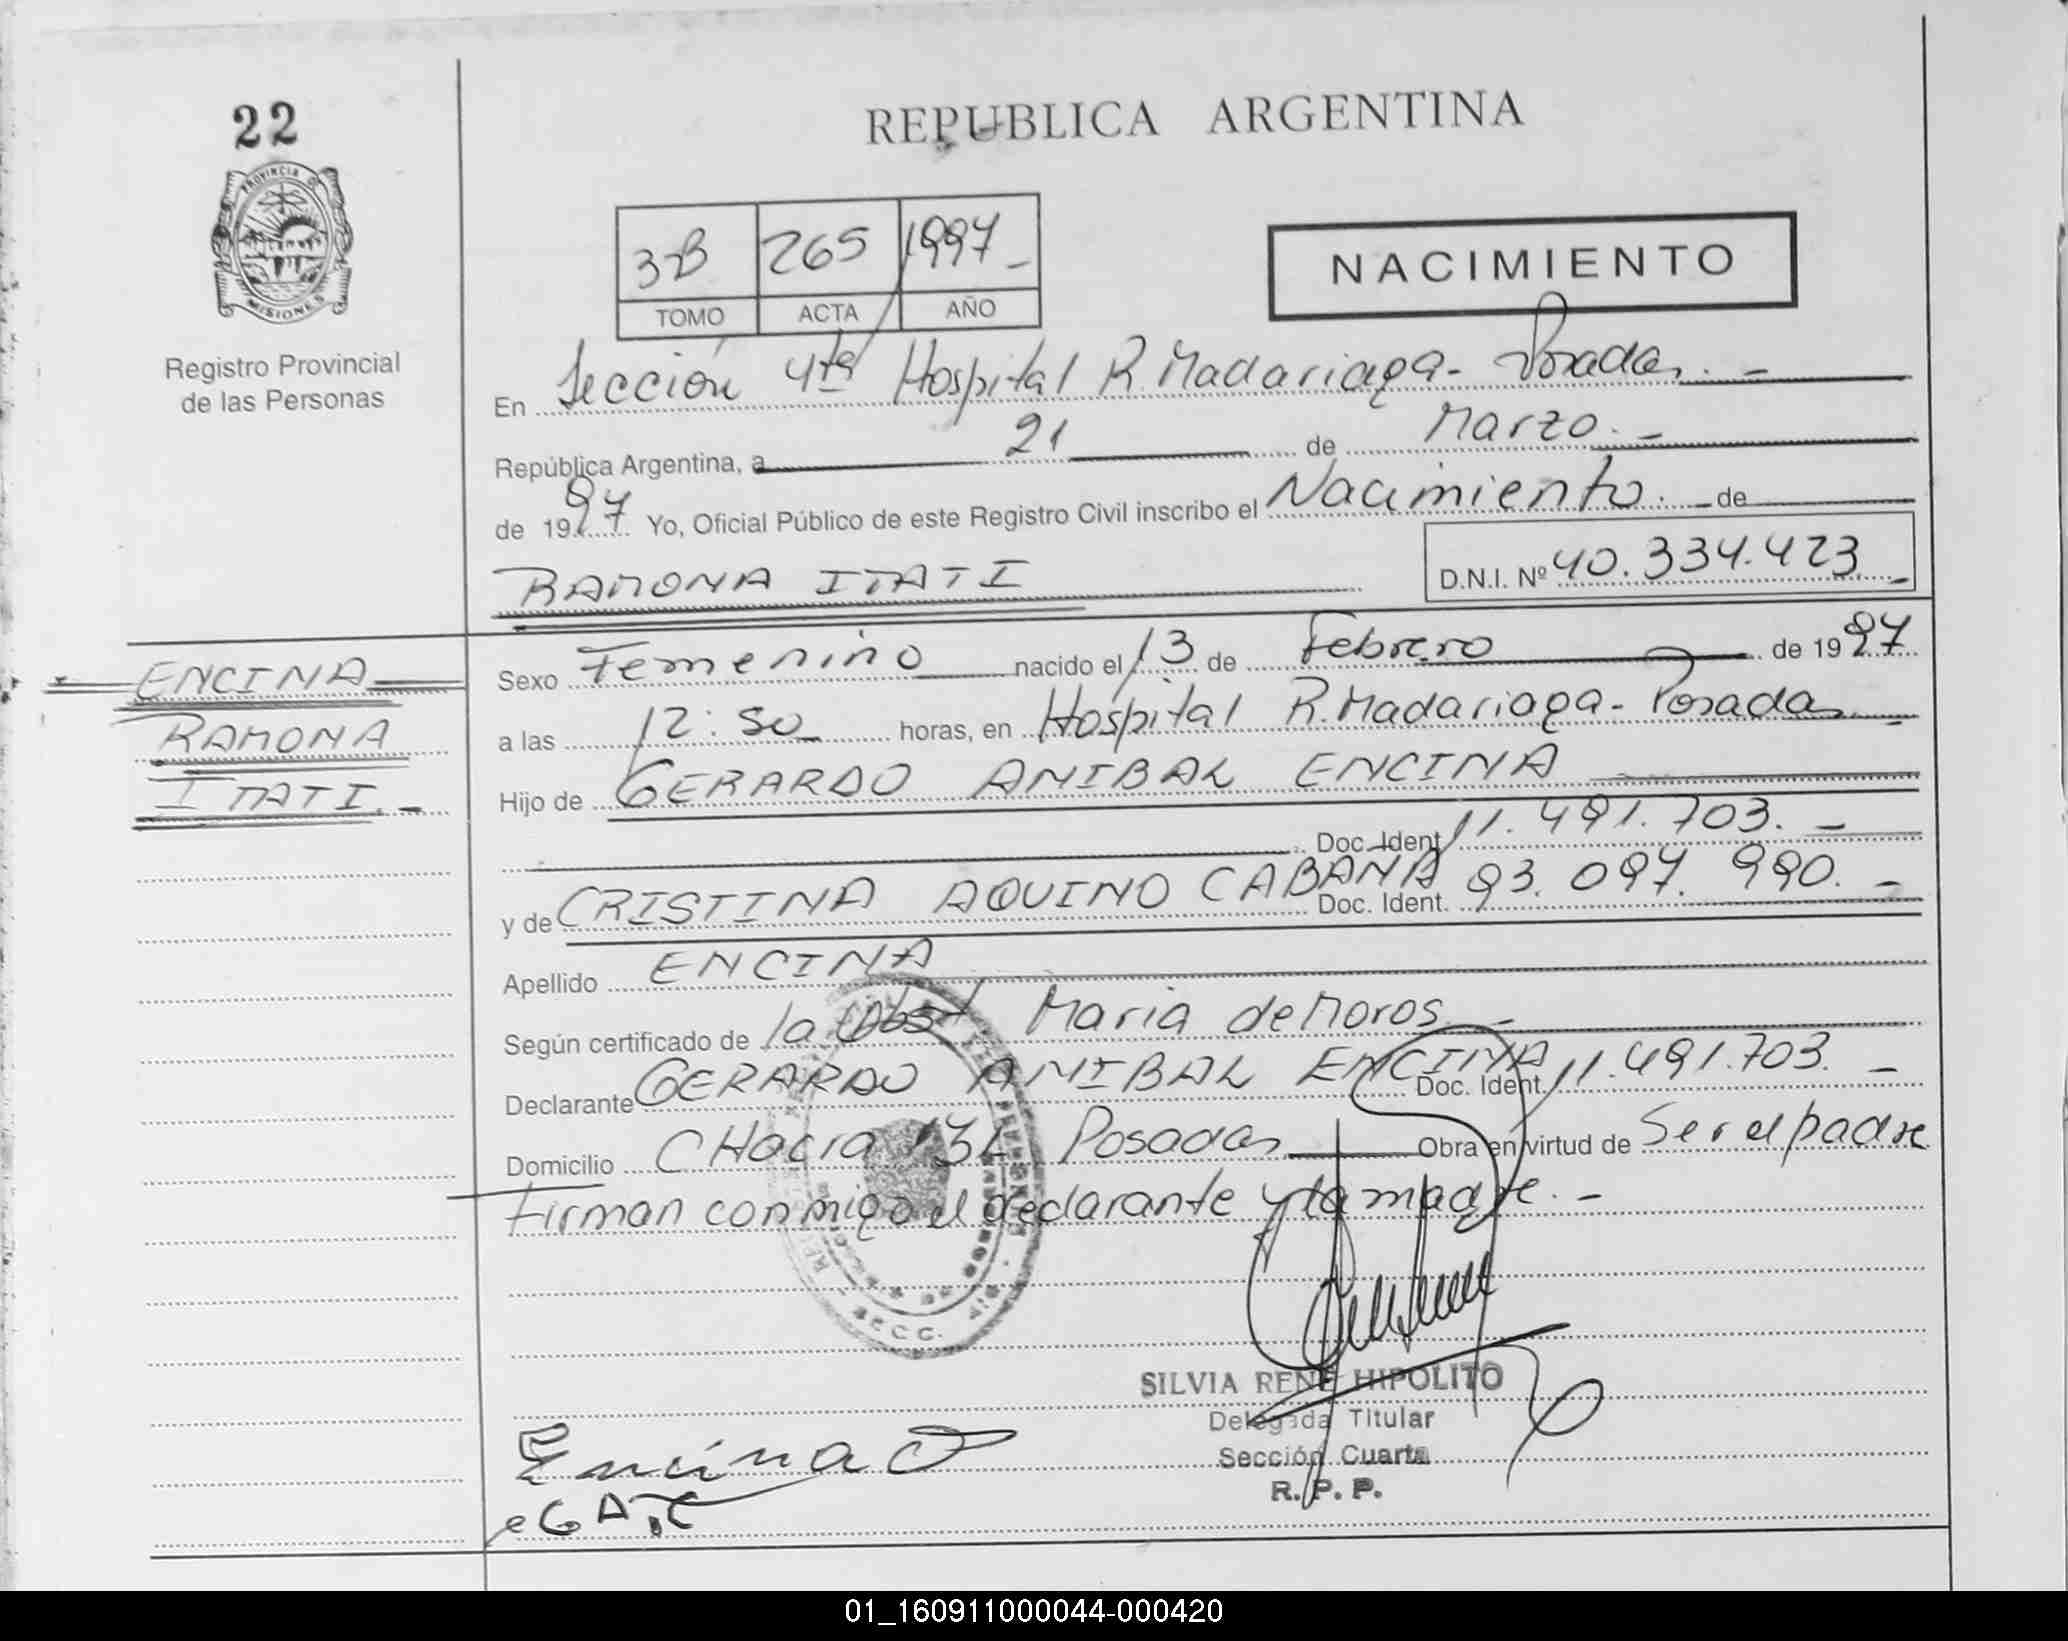 22
PROVINCIA DE
MISIONES
Registro Provincial
de las Personas
REPUBLICA ARGENTINA
3-B 265 1997
TOMO ACTA AÑO
NACIMIENTO
En Sección 4ta Hospital R. Madariaga - Posadas. -
República Argentina, a 21 de Marzo. -
de 1997 Yo, Oficial Público de este Registro Civil inscribo el Nacimiento. - de
RAMONA ITATI
D.N.I. Nº 40.334.423 -
ENCINA
RAMONA
ITATI. -
Sexo Femenino nacido el 13 de Febrero de 1997
a las 12:30 horas, en Hospital R. Madariaga - Posadas -
Hijo de GERARDO ANIBAL ENCINA
Doc. Ident. 11.491.703. -
y de CRISTINA AQUINO CABANA Doc. Ident. 93.097.990. -
Apellido ENCINA
Según certificado de la Obst Maria de Moros -
Declarante GERARDO ANIBAL ENCINA Doc. Ident. 11.491.703. -
Domicilio CHacra 132 Posadas Obra en virtud de Ser el padre
firman conmigo el declarante y la madre. -
SILVIA RENE HIPOLITO
Delegada Titular
Sección Cuarta
R. P. P.
Encina
01_160911000044-000420